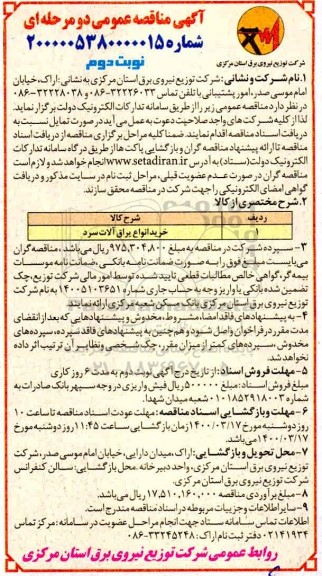 آگهی مناقصه عمومی دو مرحله ای
شماره ۲۰۰۰۰۰۵۳۸۰۰۰۰۰۱۵
نوبت دوم
شرکت توزیع نیروی برق استان مرکزی
۱.نام شرکت و نشانی: شرکت توزیع نیروی برق استان مرکزی به نشانی: اراک، خیابان
امام موسی صدر، امور پشتیبانی با تلفن تماس ۳۲۲۲۶۰۳۳-۰۸۶ و ۳۲۲۲۸۰۳۸-۰۸۶
در نظر دارد مناقصه عمومی زیر را از طریق سامانه تدارکات الکترونیک دولت برگزار نماید.
لذا از کلیه شرکت های واجد صلاحیت دعوت به عمل می آید در صورت تمایل نسبت به
دریافت اسناد مناقصه اقدام نمایند. ضمنا کلیه مراحل برگزاری مناقصه از دریافت اسناد
مناقصه تا ارائه پیشنهاد مناقصه گران و بازگشایی پاکت ها از طریق درگاه سامانه تدارکات
الکترونیک دولت (ستاد) به آدرس www.setadiran.ir انجام خواهد شد و لازم است
مناقصه گران در صورت عدم عضویت قبلی، مراحل ثبت نام در سایت مذکور و دریافت
گواهی امضای الکترونیکی را جهت شرکت در مناقصه محقق سازند.
۲.شرح مختصری از کالا
ردیف شرح کالا
۱ خرید انواع یراق آلات سرد
۳- سپرده شرکت در مناقصه به مبلغ ۹۷۵,۳۰۴,۸۰۰ ریال می باشد، مناقصه گران
می بایست مبلغ فوق را به صورت ضمانت نامه بانکی، ضمانت نامه موسسات
بیمه گر، گواهی خالص مطالبات قطعی تایید شده توسط امور مالی شرکت توزیع، چک
تضمین شده بانکی یا واریز وجه به حساب جاری شماره ۱۴۰۰۵۱۰۳۶۵۱ به نام شرکت
توزیع نیروی برق استان مرکزی بانک مسکن شعبه مرکزی ارائه نمایند
۴- به پیشنهادهای فاقد امضا، مشروط، مخدوش و پیشنهادهایی که بعد از انقضای
مدت مقرر در فراخوان واصل شود و هم چنین به پیشنهادهای فاقد سپرده، سپرده های
مخدوش، سپرده های کمتر از میزان مقرر، چک شخصی و نظایر آن ترتیب اثر داده
نخواهد شد.
۵- مهلت فروش اسناد: از تاریخ درج آگهی نوبت دوم به مدت ۶ روز کاری
مبلغ فروش اسناد: مبلغ ۵۰۰۰۰۰ ریال فیش واریزی در وجه سپهر بانک صادرات به
شماره ۰۱۰۱۸۵۲۹۱۸۰۰۳ شعبه میدان شهدا.
۶- مهلت و بازگشایی اسناد مناقصه: مهلت عودت اسناد مناقصه تا ساعت ۱۰
روز دوشنبه مورخ ۱۴۰۰/۰۳/۱۷ زمان بازگشایی ساعت ۱۱:۴۵ روز دوشنبه مورخ
۱۴۰۰/۰۳/۱۷ می باشد.
۷- محل تحویل و بازگشایی: اراک، میدان دارایی، خیابان امام موسی صدر، شرکت
توزیع نیروی برق استان مرکزی، واحد دبیرخانه. محل بازگشایی: سالن کنفرانس
شرکت توزیع نیروی برق استان مرکزی.
۸- مبلغ برآوردی مناقصه ۱۷,۵۱۰,۱۶۰,۰۰۰ ریال می باشد.
۹- سایر اطلاعات و جزییات مربوطه در اسناد مناقصه مندرج است.
اطلاعات تماس سامانه ستاد جهت انجام مراحل عضویت در سامانه: مرکز تماس
۰۲۱۴۱۹۳۴ دفتر ثبت نام اراک: ۳۳۲۴۵۲۴۸-۰۸۶
روابط عمومی شرکت توزیع نیروی برق استان مرکزی